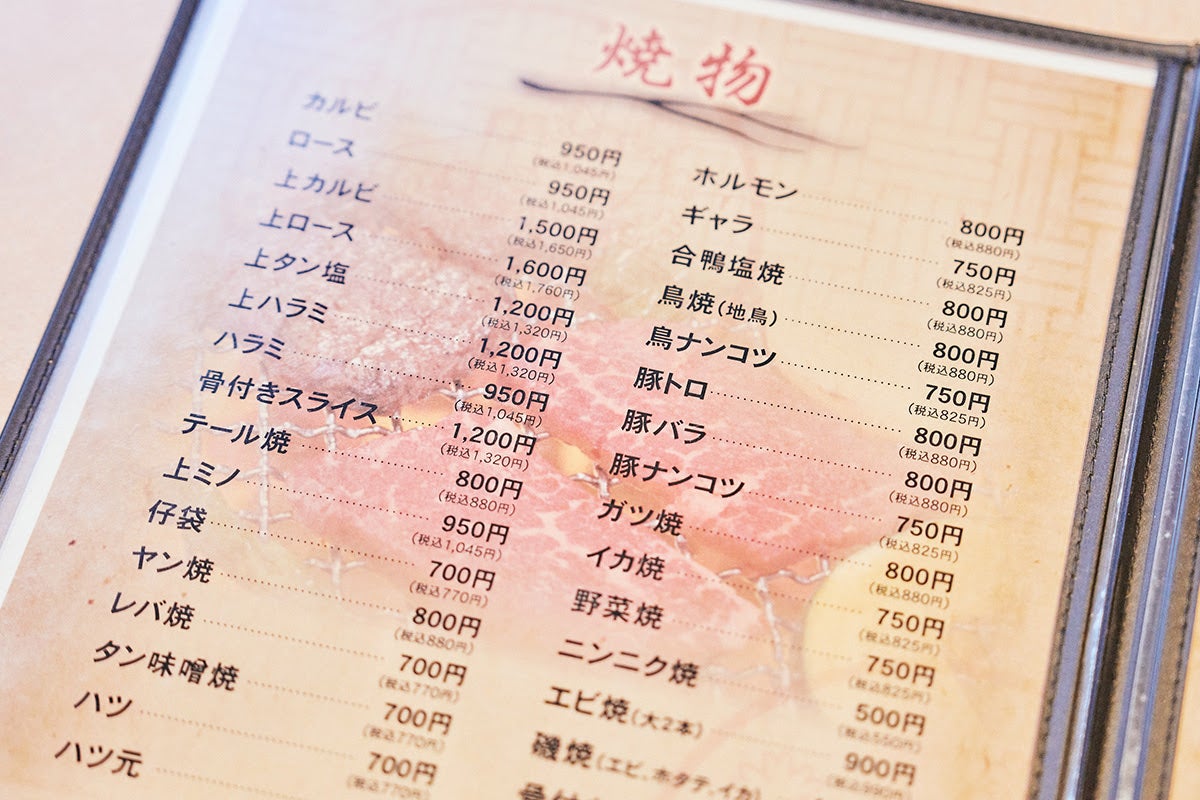 焼物
カルビ 950円
(税込1,045円)
ロース 950円
(税込1,045円)
上カルビ 1,500円
(税込1,650円)
上ロース 1,600円
(税込1,760円)
上タン塩 1,200円
(税込1,320円)
上ハラミ 1,200円
(税込1,320円)
ハラミ 950円
(税込1,045円)
骨付きスライス 1,200円
(税込1,320円)
テール焼 800円
(税込880円)
上ミノ 950円
(税込1,045円)
仔袋 700円
(税込770円)
ヤン焼 800円
(税込880円)
レバ焼 700円
(税込770円)
タン味噌焼 700円
(税込770円)
ハツ 700円
(税込770円)
ハツ元
ホルモン 800円
(税込880円)
ギャラ 750円
(税込825円)
合鴨塩焼 800円
(税込880円)
鳥焼(地鳥) 800円
(税込880円)
鳥ナンコツ 750円
(税込825円)
豚トロ 800円
(税込880円)
豚バラ 800円
(税込880円)
豚ナンコツ 750円
(税込825円)
ガツ焼 800円
(税込880円)
イカ焼 750円
(税込825円)
野菜焼 750円
(税込825円)
ニンニク焼 500円
(税込550円)
エビ焼(大2本) 900円
(税込990円)
磯焼(エビ、ホタテ、イカ)
骨付